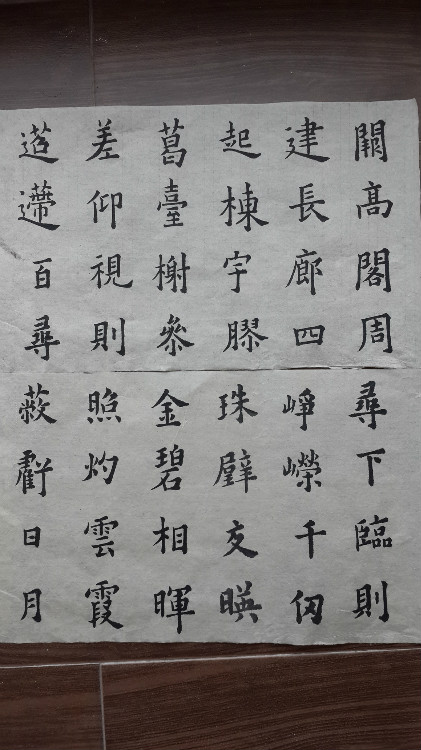 闕高閣周
建長廊四
起棟宇膠
葛臺榭參
差仰視則
迢遰百尋
尋下臨則
崢嶸千仞
珠璧交暎
金碧相暉
照灼雲霞
蔽虧日月